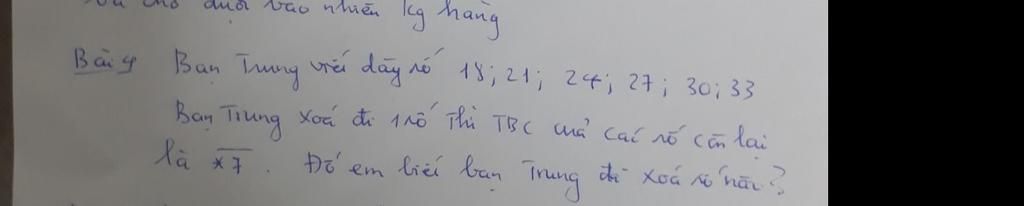 đuổi bao nhiêu kg hàng
Bài 4 Bạn Trung viết dãy số 18; 21; 24; 27; 30; 33
Bạn Trung xoá đi 1 số thì TBC của các số còn lại
là *7. Đố em biết bạn Trung đã xoá số nào?